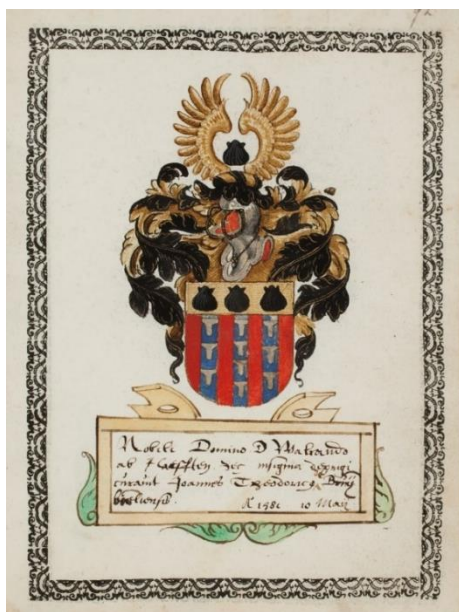 92
Nobili Domino D Walrando
ab hec insignia depingi
curavit Joannes Theodoricq
A 1581 10 Maij